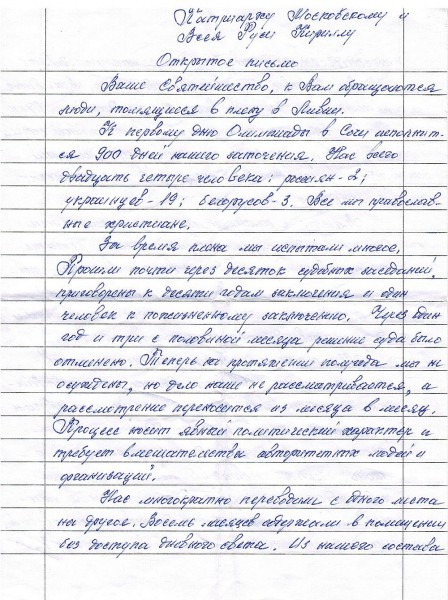 Патриарху Московскому и
Всея Руси Кириллу
Открытое письмо
Ваше Святейшество, к Вам обращаются
люди, томящиеся в плену в Ливии.
К первому дню Олимпиады в Сочи исполнит-
ся 900 дней нашего заточения. Нас всего
двадцать четыре человека: россиян - 2;
украинцев - 19; белорусов - 3. Все мы православ-
ные христиане.
За время плена мы испытали многое.
Прошли почти через десяток судебных заседаний.
приговорены к десяти годам заключения и один
человек к пожизненному заключению. Через один
год и три с половиной месяца решение суда было
отменено. Теперь на протяжении полугода мы не
осуждены, но дело наше не рассматривается, а
рассмотрение переносится из месяца в месяц.
Процесс носит явный политический характер и
требует вмешательства авторитетных людей и
организаций.
Нас многократно переводили с одного места
на другое. Восемь месяцев содержали в помещении
без доступа дневного света. Из нашего состава